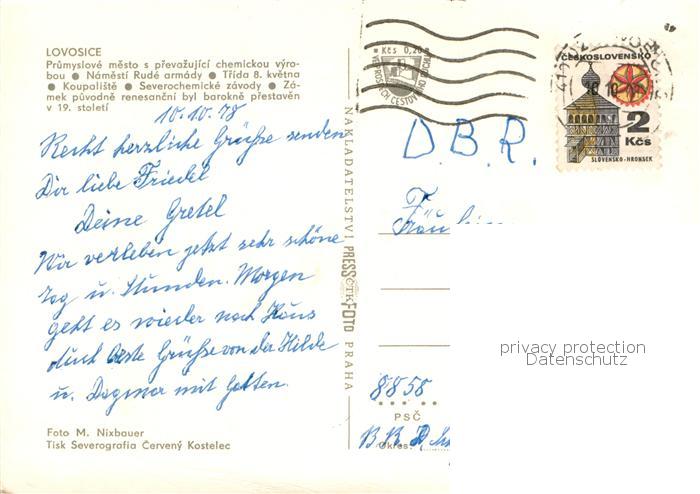 LOVOSICE
Průmyslové město s převažující chemickou výro-
bou ● Náměstí Rudé armády ● Třída 8. května
● Koupaliště ● Severochemické závody ● Zá-
mek původně renesanční byl barokně přestavěn
v 19. století
10.10.78
Recht herzliche Grüße senden
Dir liebe Friedel
Deine Gretel
Wir verleben jetzt sehr schöne
Tag u. Stunden. Morgen
geht es wieder nach Haus
auch beste Grüße von der Hilde
u. Dagmar mit Gatten.
Foto M. Nixbauer
Tisk Severografia Červený Kostelec
NAKLADATELSTVÍ PRESSFOTO PRAHA
ČTK
Kčs 0,20
ČESKOSLOVENSKO
2
Kčs
SLOVENSKO-HRONSEK
D.B.R.
Fräulein
privacy protection
Datenschutz
8858
PSČ
Okres